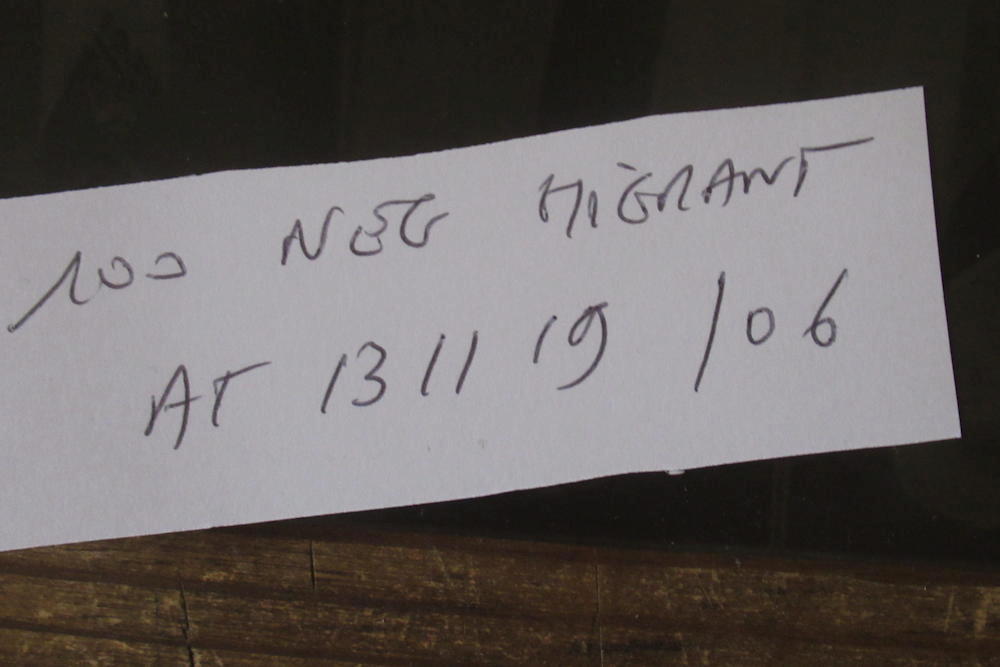 100 NEG MIGRANT
AT 13 11 19 / 06